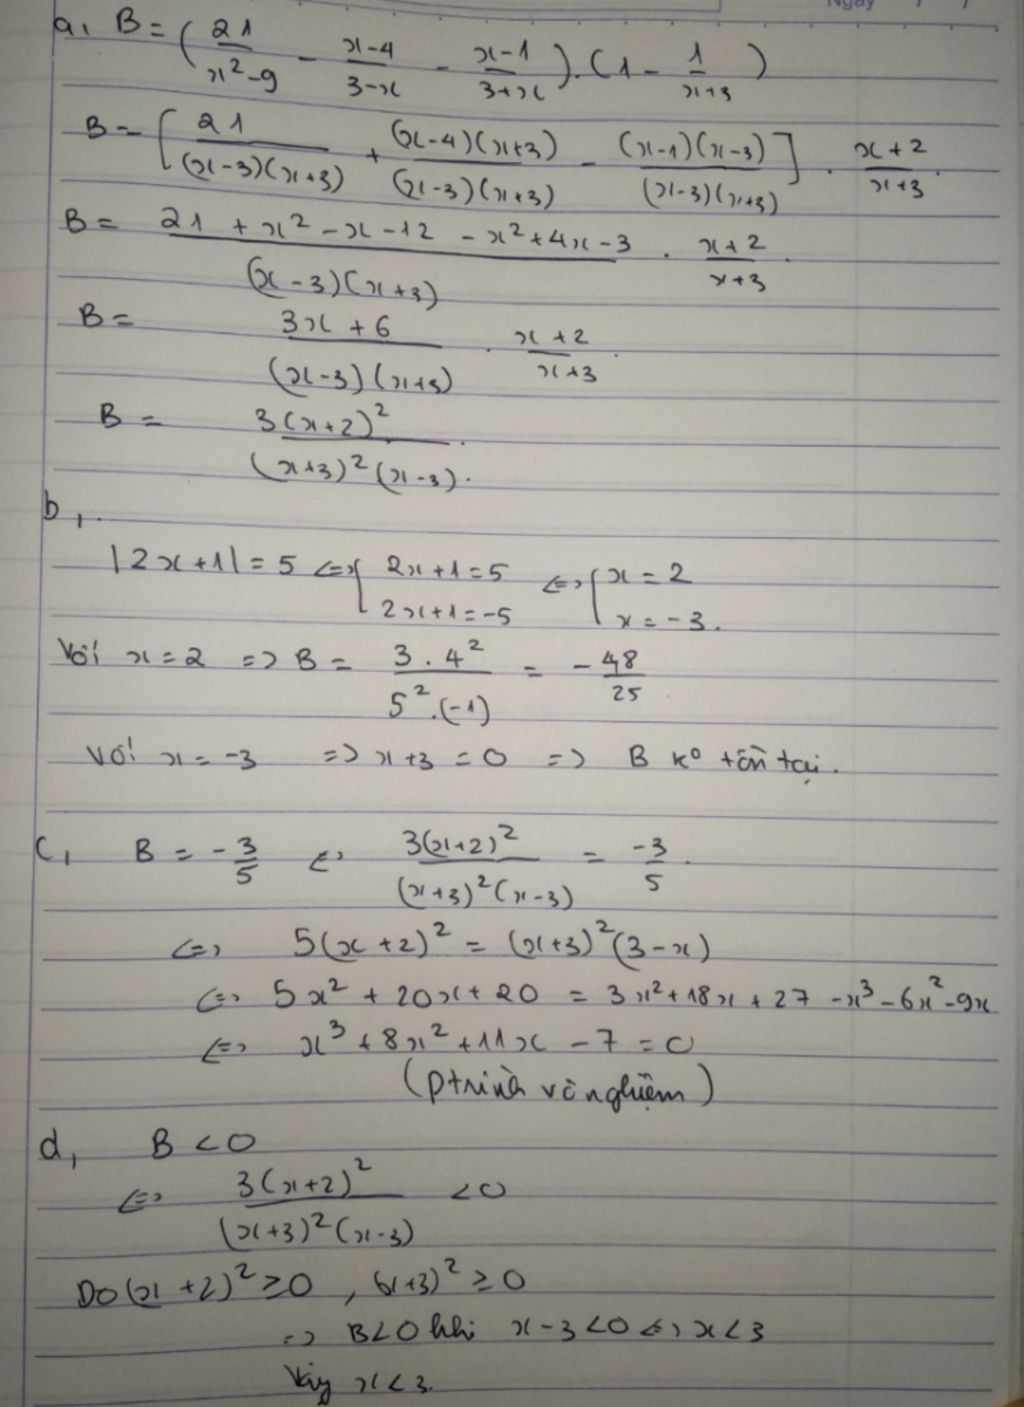 Ngày / /
a, B = ( 21/(x²-9) - (x-4)/(3-x) - (x-1)/(3+x) ) . (1 - 1/(x+3) )
B = [ 21/((x-3)(x+3)) + (x-4)(x+3)/((x-3)(x+3)) - (x-1)(x-3)/((x-3)(x+3)) ] . (x+2)/(x+3) .
B = (21 + x² - x - 12 - x² + 4x - 3)/((x-3)(x+3)) . (x+2)/(x+3) .
B = (3x + 6)/((x-3)(x+3)) . (x+2)/(x+3) .
B = 3(x+2)²/((x+3)²(x-3)) .
b, .
|2x+1| = 5 <=> [ 2x+1=5 ; 2x+1=-5 <=> [ x = 2 ; x = -3 .
Với x = 2 => B = 3 . 4²/(5².(-1)) = - 48/25
với x = -3 => x+3 = 0 => B ko tồn tại .
c, B = - 3/5 <=> 3(x+2)²/((x+3)²(x-3)) = -3/5 .
<=> 5(x+2)² = (x+3)²(3-x)
<=> 5x² + 20x + 20 = 3x² + 18x + 27 - x³ - 6x² - 9x
<=> x³ + 8x² + 11x - 7 = 0
(ptrình vô nghiệm)
d, B < 0
<=> 3(x+2)²/((x+3)²(x-3)) < 0
Do (x+2)² ≥ 0 , (x+3)² ≥ 0
=> B<0 khi x-3<0 <=> x<3
Vậy x<3.